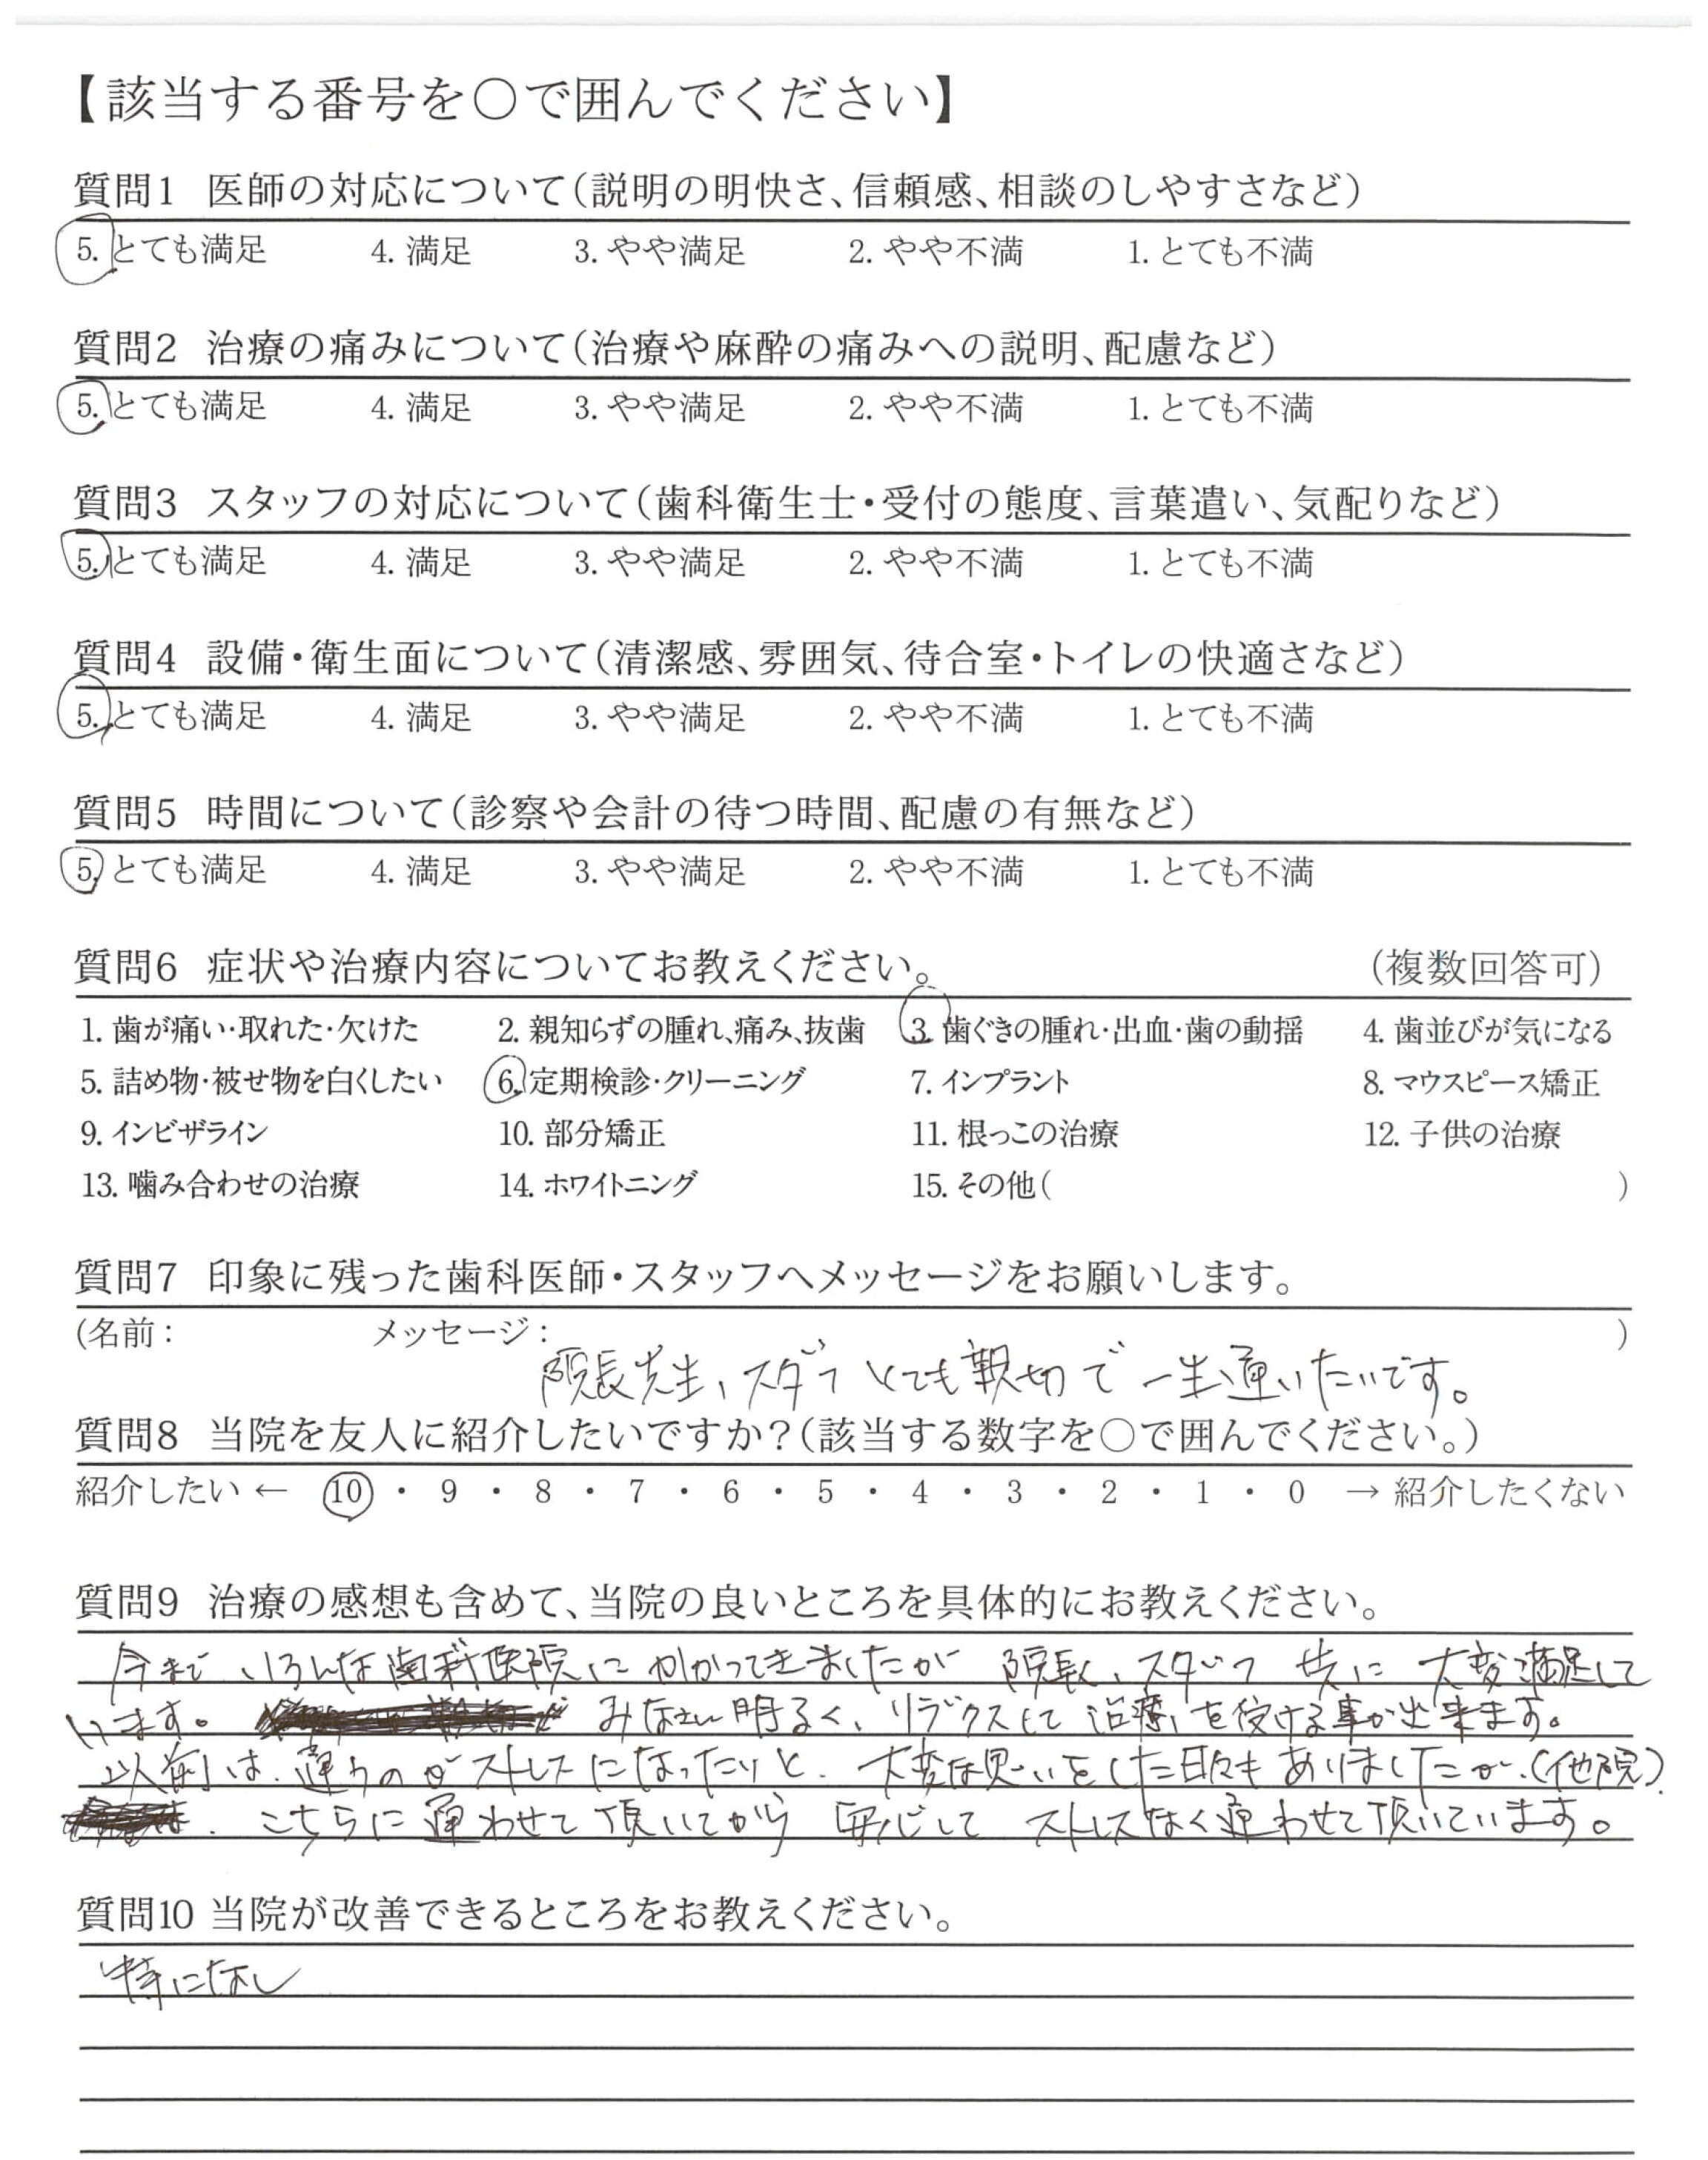 【該当する番号を〇で囲んでください】
質問1 医師の対応について(説明の明快さ、信頼感、相談のしやすさなど)
5. とても満足 4. 満足 3. やや満足 2. やや不満 1. とても不満
質問2 治療の痛みについて(治療や麻酔の痛みへの説明、配慮など)
5. とても満足 4. 満足 3. やや満足 2. やや不満 1. とても不満
質問3 スタッフの対応について(歯科衛生士・受付の態度、言葉遣い、気配りなど)
5. とても満足 4. 満足 3. やや満足 2. やや不満 1. とても不満
質問4 設備・衛生面について(清潔感、雰囲気、待合室・トイレの快適さなど)
5. とても満足 4. 満足 3. やや満足 2. やや不満 1. とても不満
質問5 時間について(診察や会計の待つ時間、配慮の有無など)
5. とても満足 4. 満足 3. やや満足 2. やや不満 1. とても不満
質問6 症状や治療内容についてお教えください。 (複数回答可)
1. 歯が痛い・取れた・欠けた 2. 親知らずの腫れ、痛み、抜歯 3. 歯ぐきの腫れ・出血・歯の動揺 4. 歯並びが気になる
5. 詰め物・被せ物を白くしたい 6. 定期検診・クリーニング 7. インプラント 8. マウスピース矯正
9. インビザライン 10. 部分矯正 11. 根っこの治療 12. 子供の治療
13. 噛み合わせの治療 14. ホワイトニング 15. その他( )
質問7 印象に残った歯科医師・スタッフへメッセージをお願いします。
(名前: メッセージ: )
院長先生、スタッフ とても親切で 一生通いたいです。
質問8 当院を友人に紹介したいですか?(該当する数字を〇で囲んでください。)
紹介したい ← 10 ・ 9 ・ 8 ・ 7 ・ 6 ・ 5 ・ 4 ・ 3 ・ 2 ・ 1 ・ 0 → 紹介したくない
質問9 治療の感想も含めて、当院の良いところを具体的にお教えください。
今まで いろんな歯科医院に かかってきましたが 院長、スタッフ 共に 大変満足して
います。 みなさん明るく、リラックスして 治療を受ける事が出来ます。
以前は、通うのがストレスになったりと、大変な思いをした日々もありましたが、(他院)
、こちらに通わせて頂いてから 安心して ストレスなく通わせて頂いています。
質問10 当院が改善できるところをお教えください。
特になし